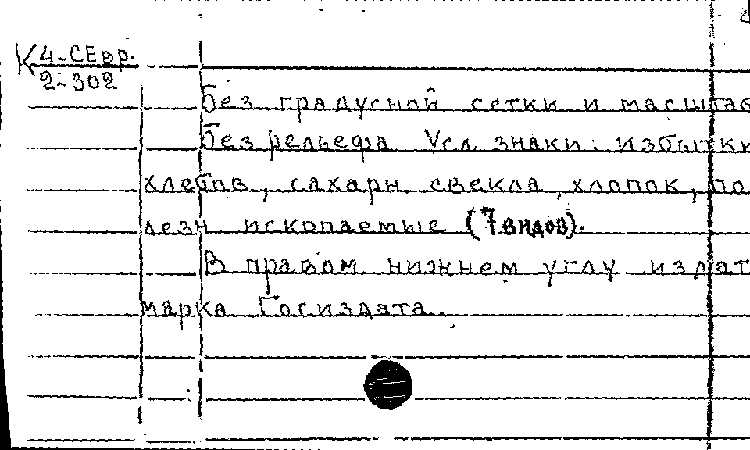 К 4-СЕвр.
2-302
Без градусной сетки и масштаб
Без рельефа Усл. знаки: избытки
хлебов, сахарн. свекла, хлопок, по
лезн ископаемые (7 видов).
В правом нижнем углу издат
марка Госиздата.